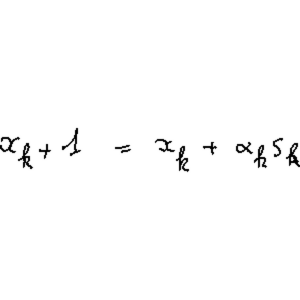 x_{k+1} = x_k + α_k s_k